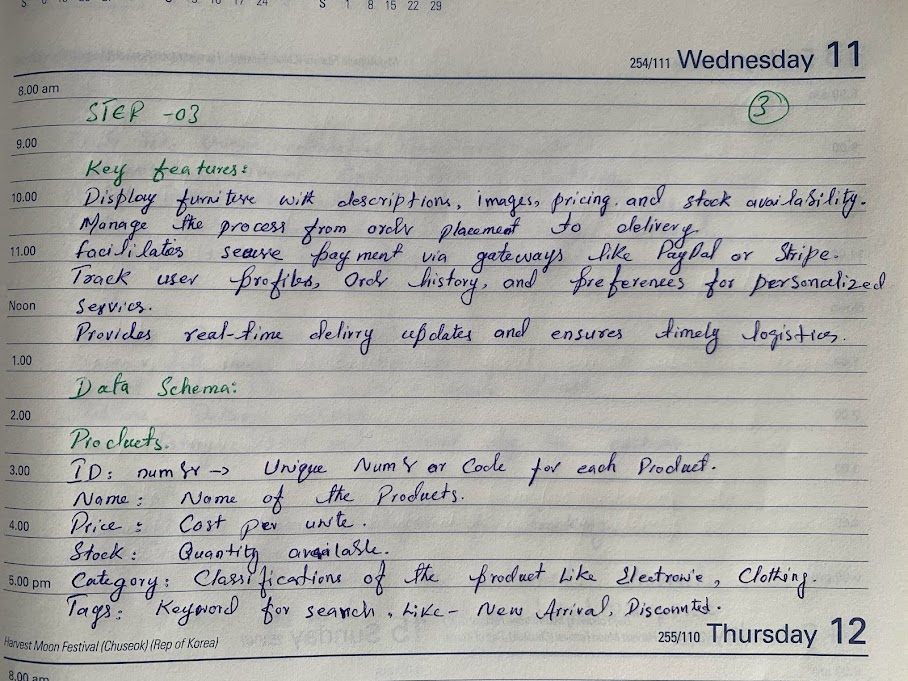 S 6 13 20 27 S 3 10 17 24 S 1 8 15 22 29
254/111 Wednesday 11
8.00 am
STEP -03 3
9.00
Key features:
10.00 Display furniture with descriptions, images, pricing, and stock availability.
Manage the process from order placement to delivery.
11.00 facilitates secure payment via gateways like PayPal or Stripe.
Track user profiles, Order history, and preferences for personalized
Noon services.
Provides real-time delivry updates and ensures timely logistics.
1.00
Data Schema:
2.00
Products.
3.00 ID: number -> Unique Number or Code for each Product.
Name: Name of the Products.
4.00 Price: Cost per unite.
Stock: Quantity available.
5.00 pm Category: Classifications of the product Like Electronic, Clothing.
Tags: Keyword for search, Like- New Arrival, Discounted.
Harvest Moon Festival (Chuseok) (Rep of Korea) 255/110 Thursday 12
8.00 am